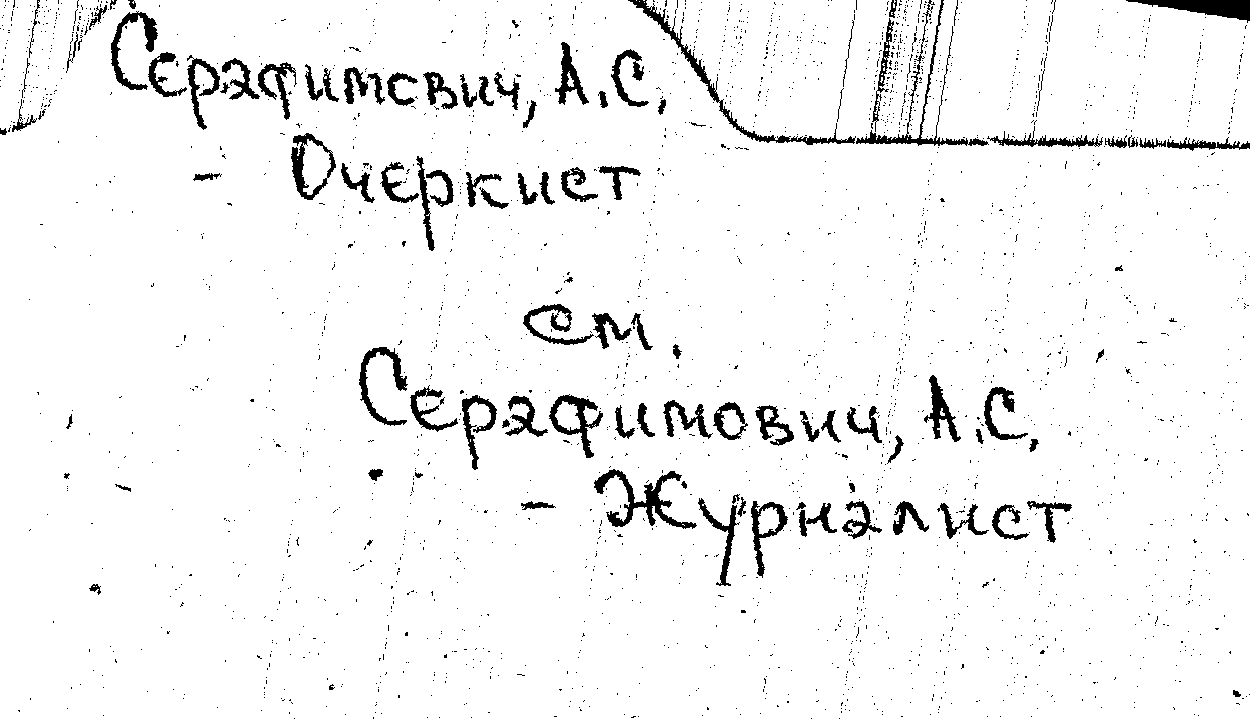 Серафимович, А.С.
- Очеркист
см.
Серафимович, А.С.
- Журналист